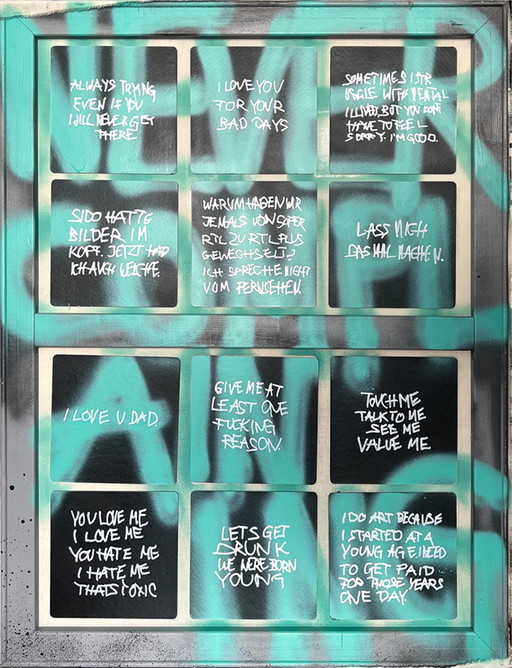 ALWAYS TRYING
EVEN IF YOU
WILL NEVER GET
THERE
I LOVE YOU
FOR YOUR
BAD DAYS
SOMETIMES I STR
UGGLE WITH MENTAL
ILLNES, BUT YOU DONT
HAVE TO FEEL
SORRY. I'M GOOD.
SIDO HATTE
BILDER IM
KOPF. JETZT HAB
ICH AUCH WELCHE.
WARUM HABEN WIR
JEMALS VON SUPER
RTL ZU RTL PLUS
GEWECHSELT?
ICH SPRECHE NICHT
VOM FERNSEHEN.
LASS MICH
DAS MAL MACHEN.
I LOVE U DAD.
GIVE ME AT
LEAST ONE
FUCKING
REASON.
TOUCH ME
TALK TO ME
SEE ME
VALUE ME
YOU LOVE ME
I LOVE ME
YOU HATE ME
I HATE ME
THATS TOXIC
LETS GET
DRUNK
WE WERE BORN
YOUNG
I DO ART BECAUSE
I STARTED AT A
YOUNG AGE. I NEED
TO GET PAID
FOR THOSE YEARS
ONE DAY.